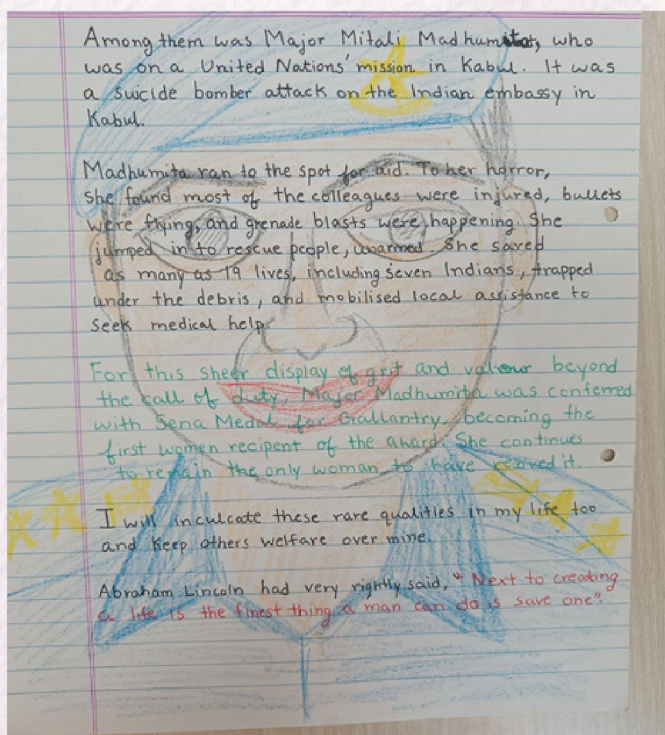 Among them was Major Mitali Madhumita, who
was on a United Nations' mission in Kabul. It was
a suicide bomber attack on the Indian embassy in
Kabul.
Madhumita ran to the spot for aid. To her horror,
she found most of the colleagues were injured, bullets
were flying, and grenade blasts were happening. She
jumped in to rescue people, unarmed. She saved
as many as 19 lives, including seven Indians, trapped
under the debris, and mobilised local assistance to
seek medical help.
For this sheer display of grit and valour beyond
the call of duty, Major Madhumita was conferred
with Sena Medal for Gallantry, becoming the
first women recipent of the award. She continues
to remain the only woman to have received it.
I will inculcate these rare qualities in my life too
and keep others welfare over mine.
Abraham Lincoln had very rightly said, "Next to creating
a life is the finest thing a man can do is save one".